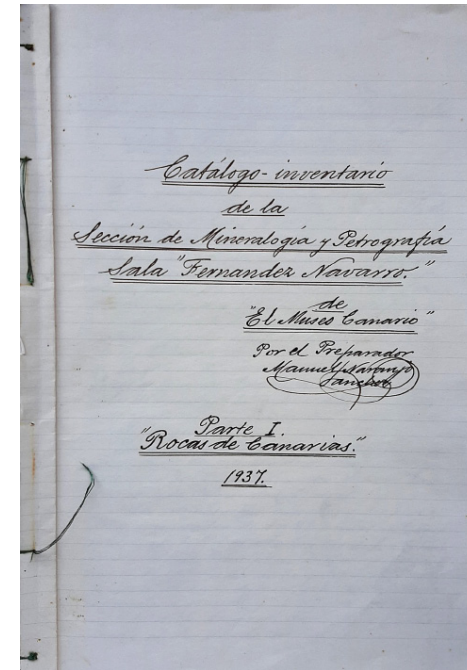 Catálogo-inventario
de la
Sección de Mineralogía y Petrografía
Sala "Fernandez Navarro."
de
"El Museo Canario"
Por el Preparador
Manuel Naranjo
Sánchez
Parte I
"Rocas de Canarias."
1937.